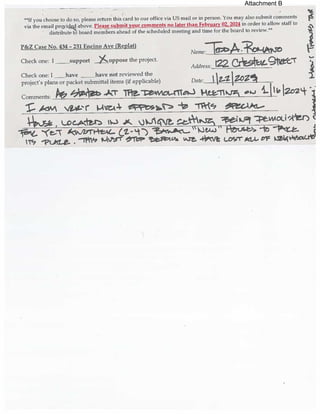 Attachment B
**If you choose to do so, please return this card to our office via US mail or in person. You may also submit comments
via the email provided above. Please submit your comments no later than February 02, 2024 in order to allow staff to
distribute to board members ahead of the scheduled meeting and time for the board to review.**
P&Z Case No. 434 – 231 Encino Ave (Replat)
Name: TODD A. ROMANO
Check one: I ___support X oppose the project
Address: 122 CHESTER STREET
Check one: I ___have ___have not reviewed the
project's plans or packet submittal items (if applicable)
Date: 1/22/2024
Comments: AS STATED AT THE DEMOLITION MEETING ON 1/16/2024:
I AM VERY MUCH OPPOSED TO THIS SPECIAL
HOUSE, LOCATED IN A UNIQUE SETTING, BEING DEMOLISHED
FOR YET ANOTHER (2-4) BANAL "NEW" HOUSES TO TAKE
ITS PLACE. THIS MUST STOP BEFORE WE HAVE LOST ALL OF